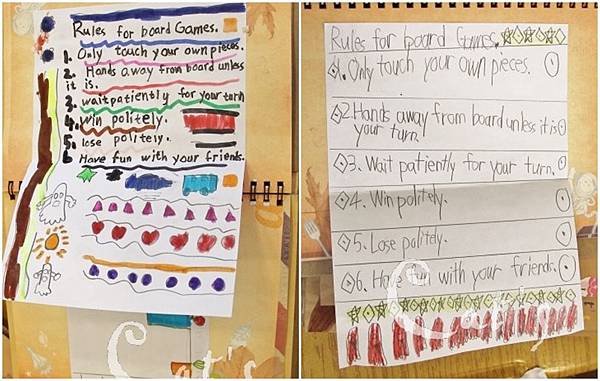 Rules for board Games.
1. Only touch your own pieces.
2. Hands away from board unless
it is.
3. wait patiently for your turn
4. Win politely.
5. lose politely.
6 Have fun with your friends.
Rules for board Games.
1. Only touch your own pieces.
2 Hands away from board unless it is
your turn.
3. Wait patiently for your turn.
4. Win politely.
5. Lose politely.
6. Have fun with your friends.